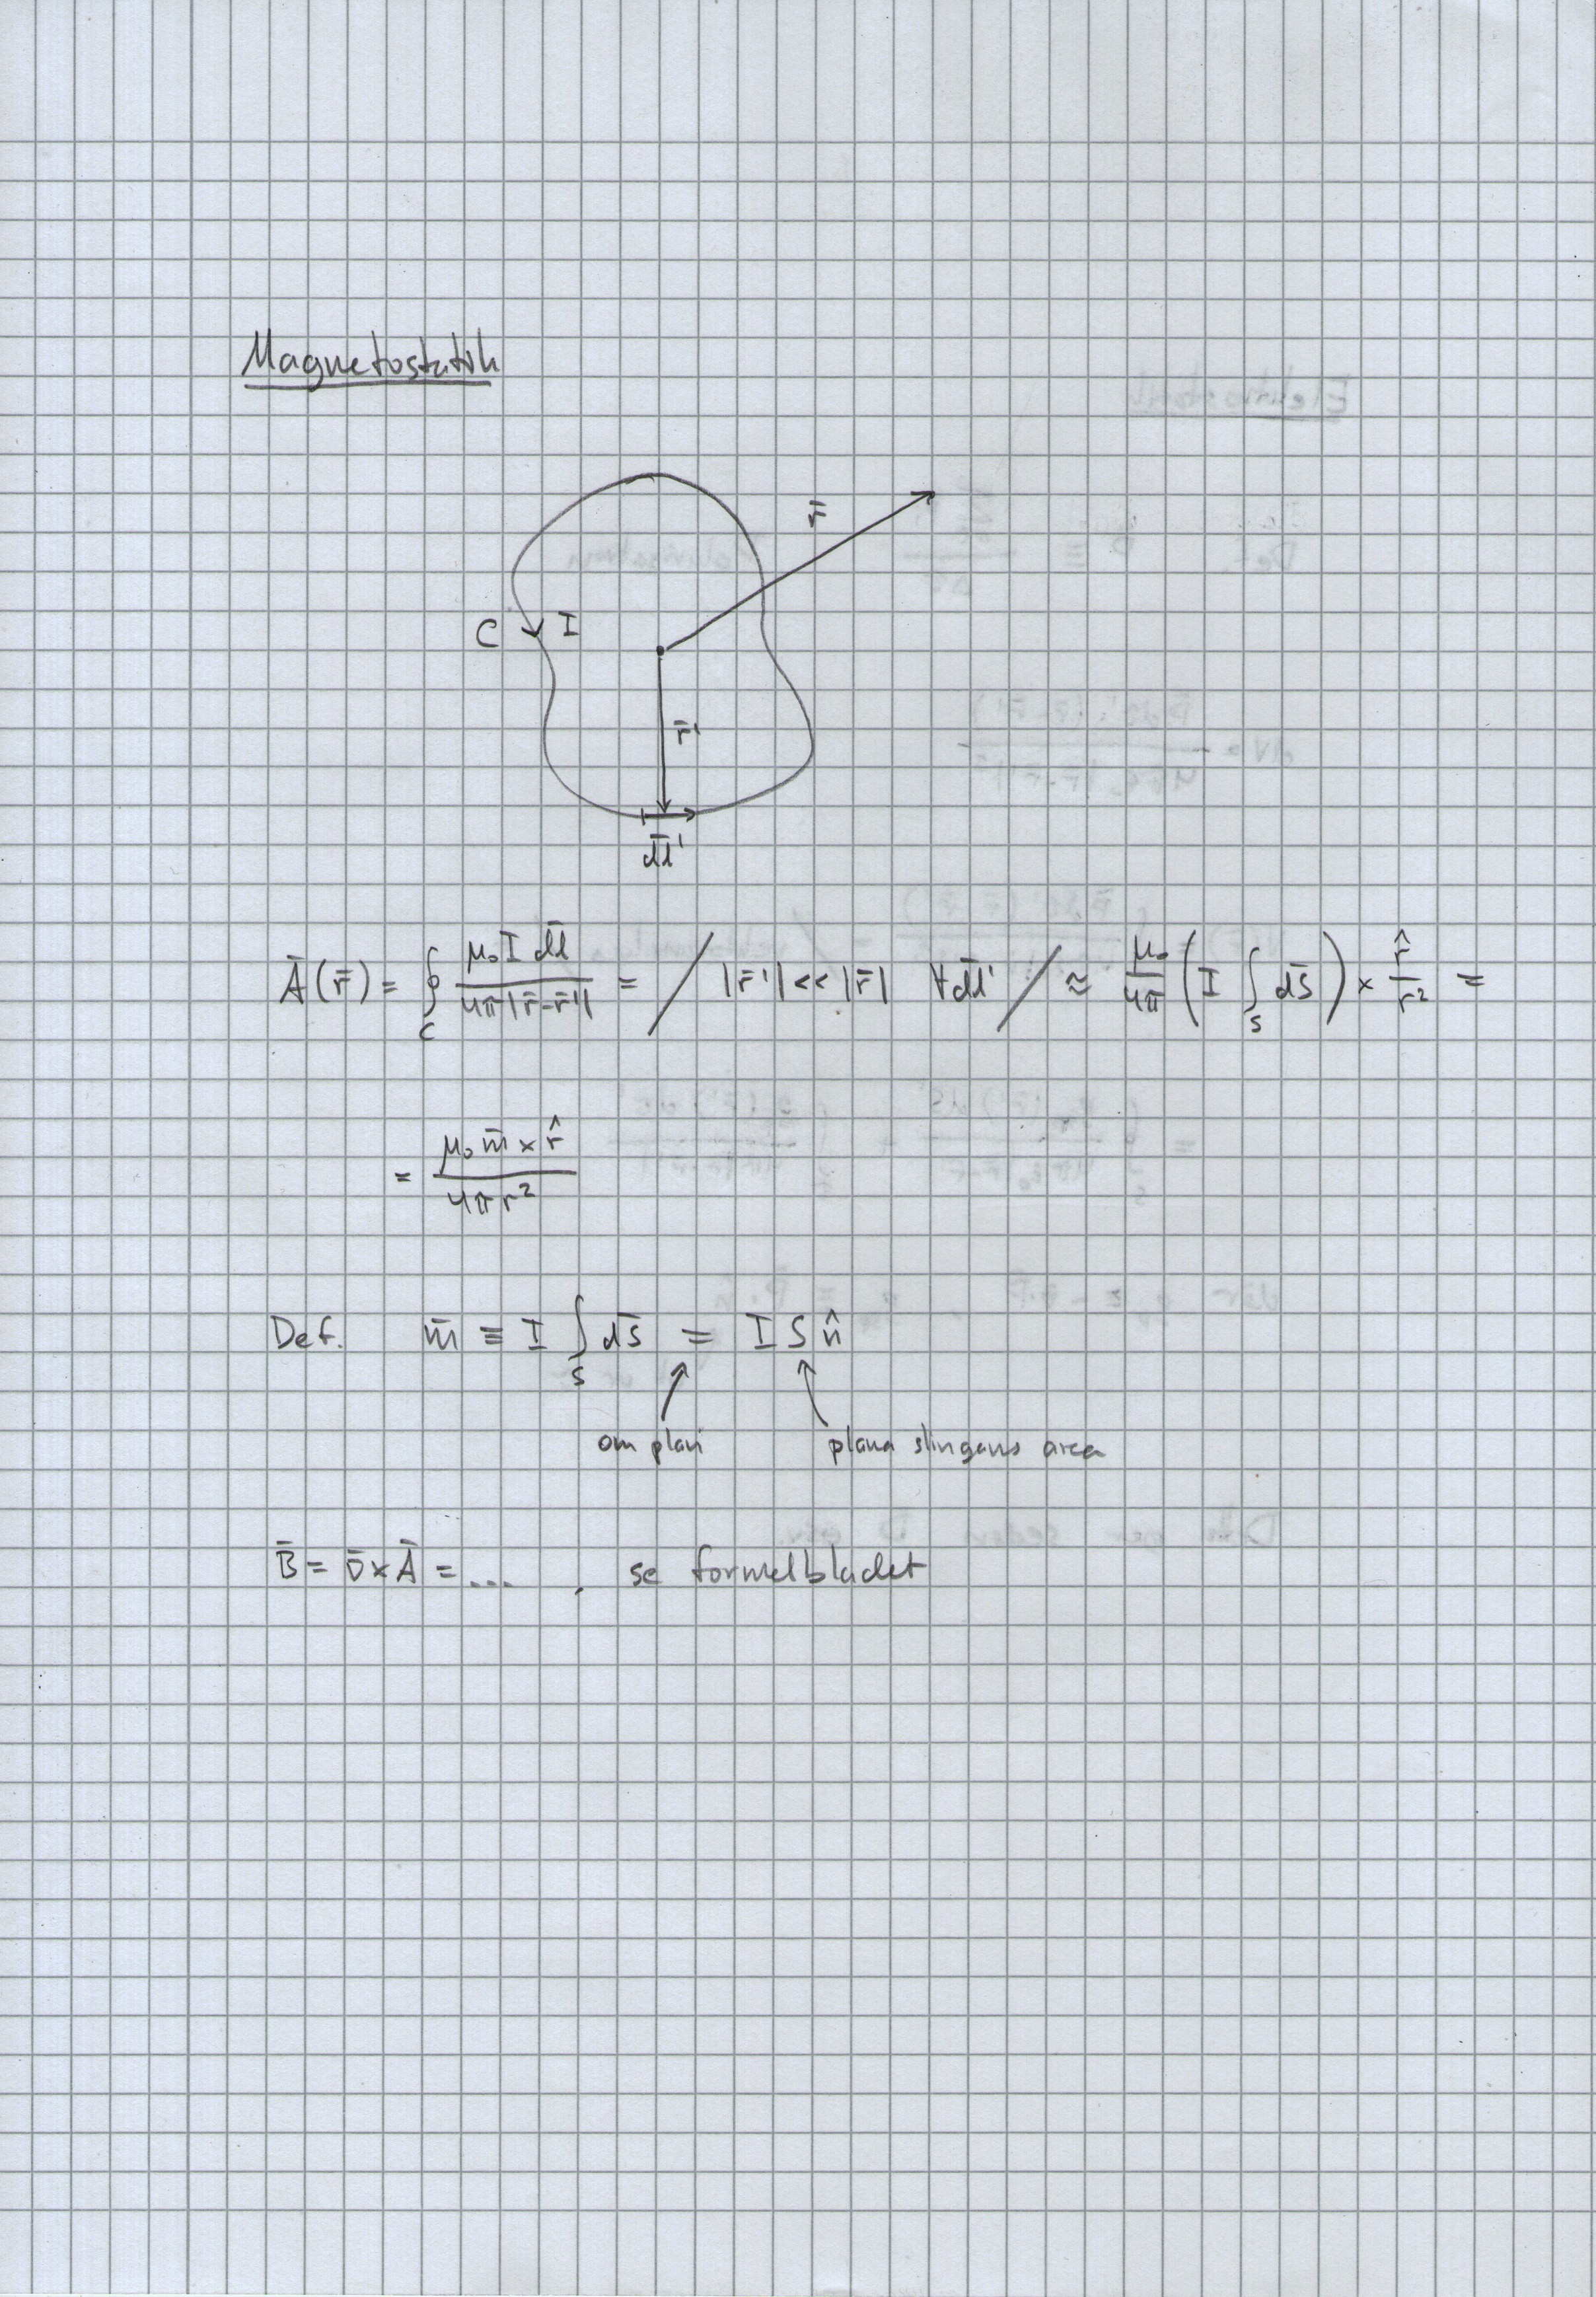 Magnetostatik
r̄
C I
r̄'
dl̄'
Ā(r̄) = ∮_C μ₀ I dl̄ / 4π|r̄-r̄'| = / |r̄'| << |r̄| ∀ dl̄' / ≈ μ₀/4π ( I ∫_S ds̄ ) × r̂/r² =
= μ₀ m̄ × r̂ / 4πr²
Def. m̄ ≡ I ∫_S ds̄ = I S n̂
om plan plana slingans area
B̄ = ∇̄ × Ā = ... , se formelbladet